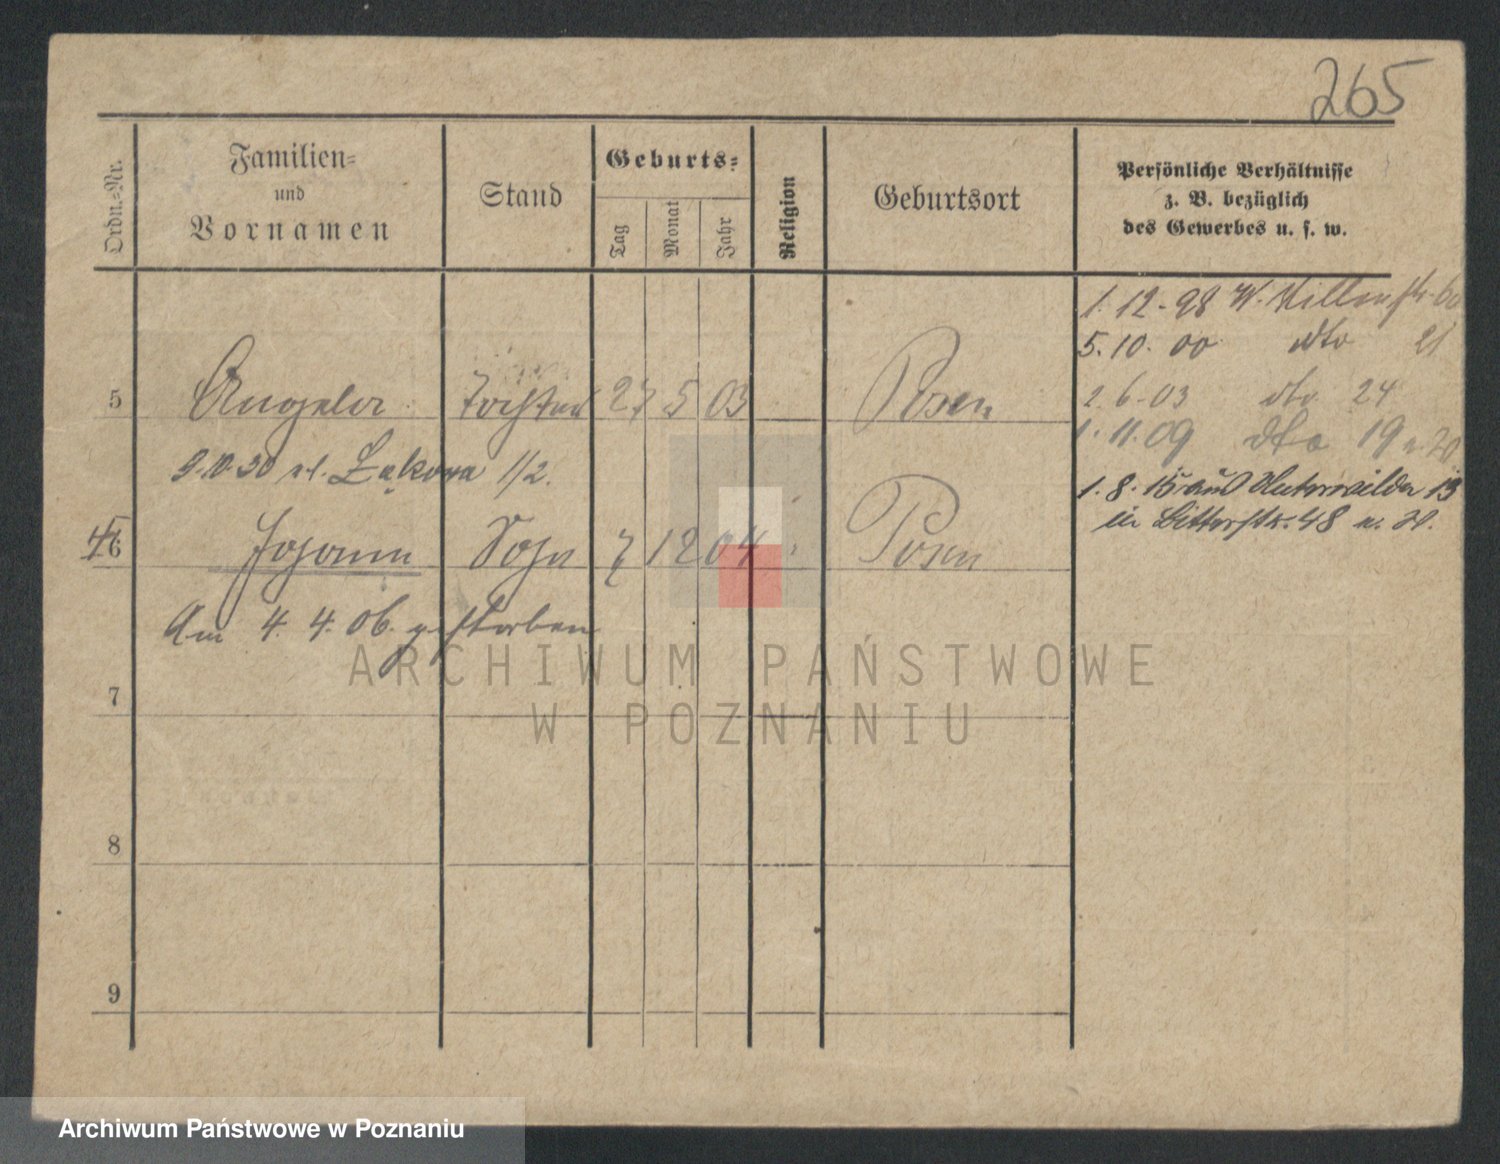 265
Ordn.-Nr.
Familien-
und
Vornamen
Stand
Geburts-
Tag
Monat
Jahr
Religion
Geburtsort
Persönliche Verhältnisse
z. B. bezüglich
des Gewerbes u. s. w.
1. 12. 98 W.
5. 10. 00 dto 21
5 Angela Tochter 27 5 03 Posen
2. 6. 03 dto 24
1. 11. 09 dto 19 u. 20
9.10.30 ul. Łąkowa 1/2.
1. 8. 15
in Bitterstr. 48
6 Johann Sohn 7 12 04 Posen
Am 4. 4. 06. gestorben
7
8
9
ARCHIWUM PAŃSTWOWE
W POZNANIU
Archiwum Państwowe w Poznaniu